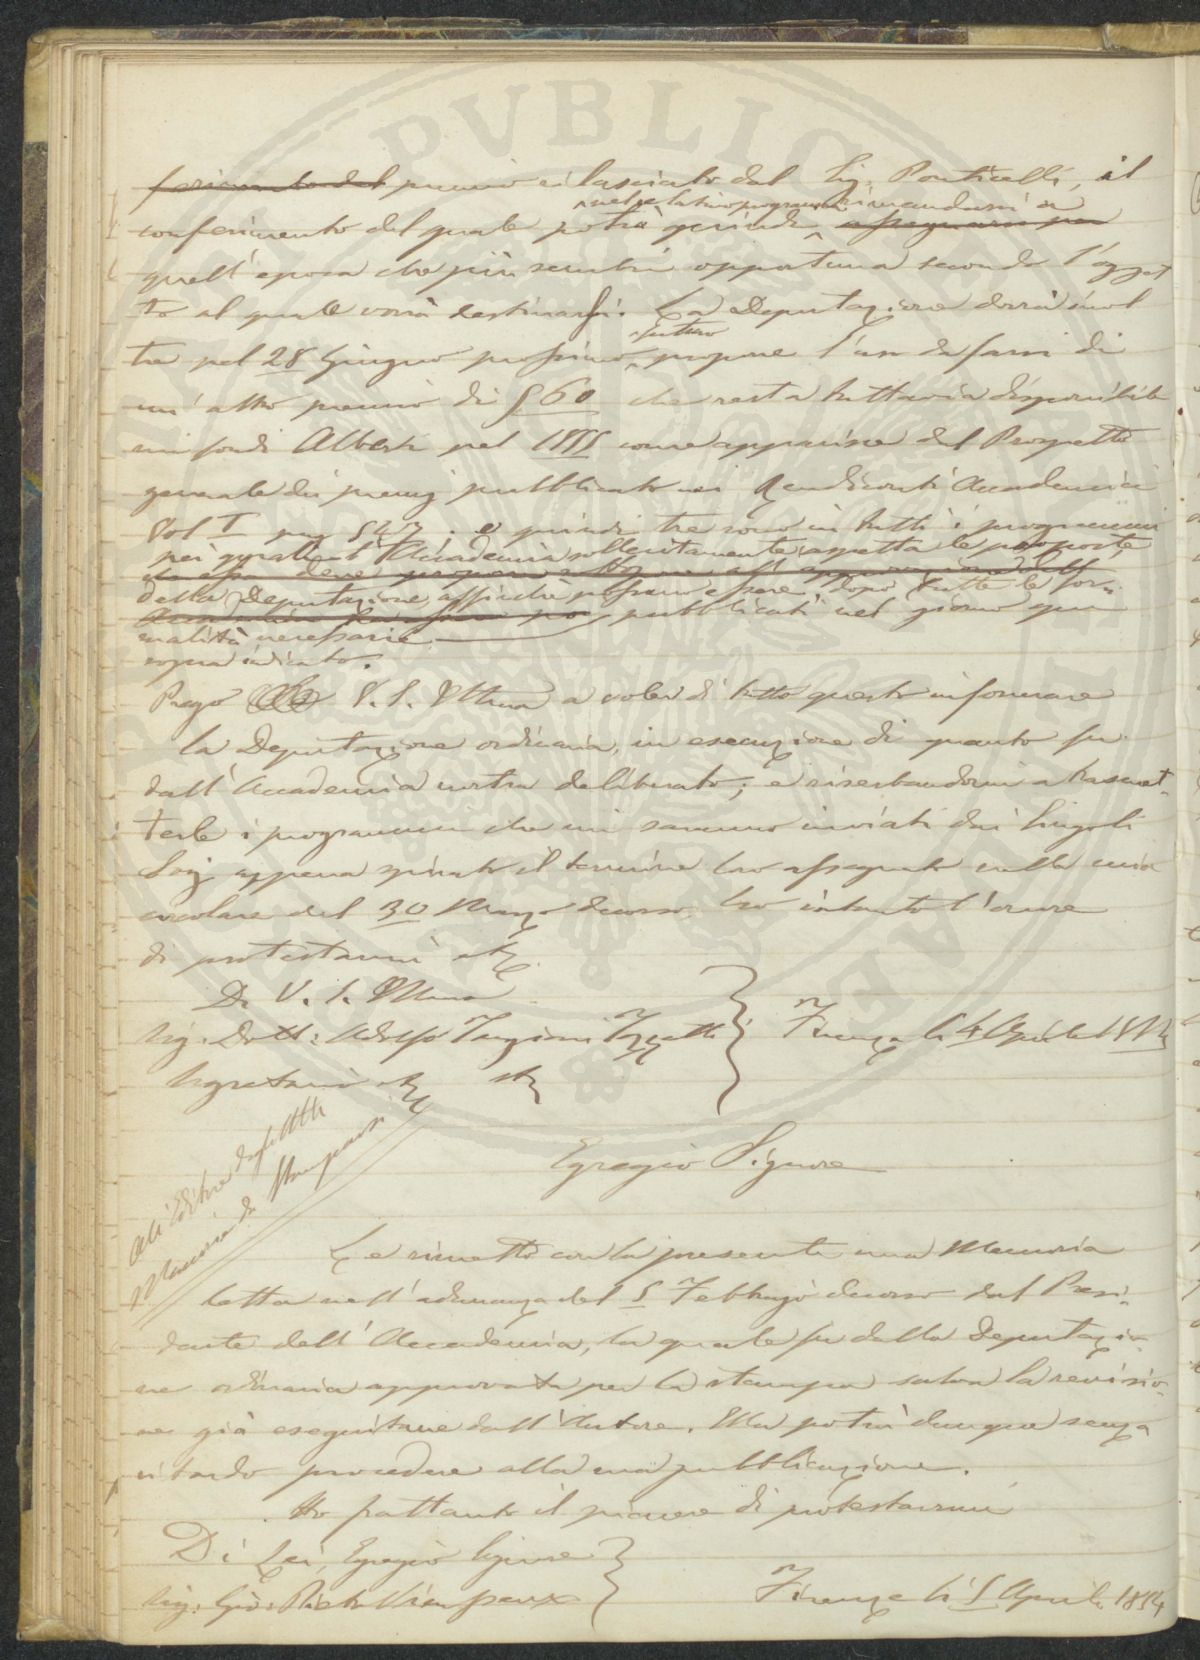 premio rilasciato dal Sig. Ponticelli, il
nel relativo programma rimandarsi a
conferimento del quale potrà quindi assegnarsi per
quell'epoca che più sembri opportuna secondo l'ogget
to al quale vorrà destinarsi. La Deputazione dovrà inol
tre pel 28 Giugno prossimo futuro propone l'uso da farsi di
un altro premio di £ 60 che resta tuttavia disponibile
sui fondi Alberti pel 1855 come apparisce dal Prospetto
generale dei premj pubblicato nei Rendiconti Accademici
Vol I pag 547; e quindi tre sono in tutti i programmi
pei quali l'Accademia sollecitamente aspetta le proposte
della Deputazione, affinchè possano essere, dopo tutte le for-
malità necessarie
pubblicati nel giorno qui
sopra indicato.
Prego V. S. Illma a voler di tutto questo informare
la Deputazione ordinaria, in esecuzione di quanto fu
dall'Accademia nostra deliberato; e riserbandomi a trasmet-
terle i programmi che mi saranno inviati dai singoli
Socj appena spirato il termine loro assegnato nella mia
circolare del 30 Marzo decorso, ho intanto l'onore
di protestarmi
Di V. S. Illma
Sig. Dott: Adolfo Targioni Tozzetti
Firenze li 4 Aprile 1854
Segretario
All'Editore degli Atti
Memoria da stamparsi
Egregio Signore
Le rimetto con la presente una Memoria
letta nell'adunanza del 5 Febbrajo decorso dal Presi-
dente dell'Accademia, la quale fu dalla Deputazio-
ne ordinaria approvata per la stampa salva la revisio-
ne già eseguitane dall'Autore. Ella potrà dunque senza
ritardo procedere alla sua pubblicazione.
Ho frattanto il piacere di protestarmi
Di Lei, Egregio Signore
Sig. Gio: Pietro Vieusseux
Firenze li 5 Aprile 1854
PVBLIC